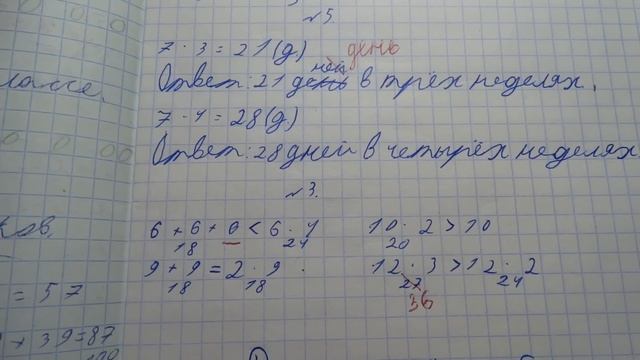 №5.
7 · 3 = 21 (д) день
Ответ: 21 день ней в трёх неделях.
7 · 4 = 28 (д)
Ответ: 28 дней в четырёх неделях
№3.
6 + 6 + 6 < 6 · 4
18 24
9 + 9 = 2 · 9
18 18
10 · 2 > 10
20
12 · 3 > 12 · 2
27 24
36
лассе.
ков.
= 57
+ 39 = 87